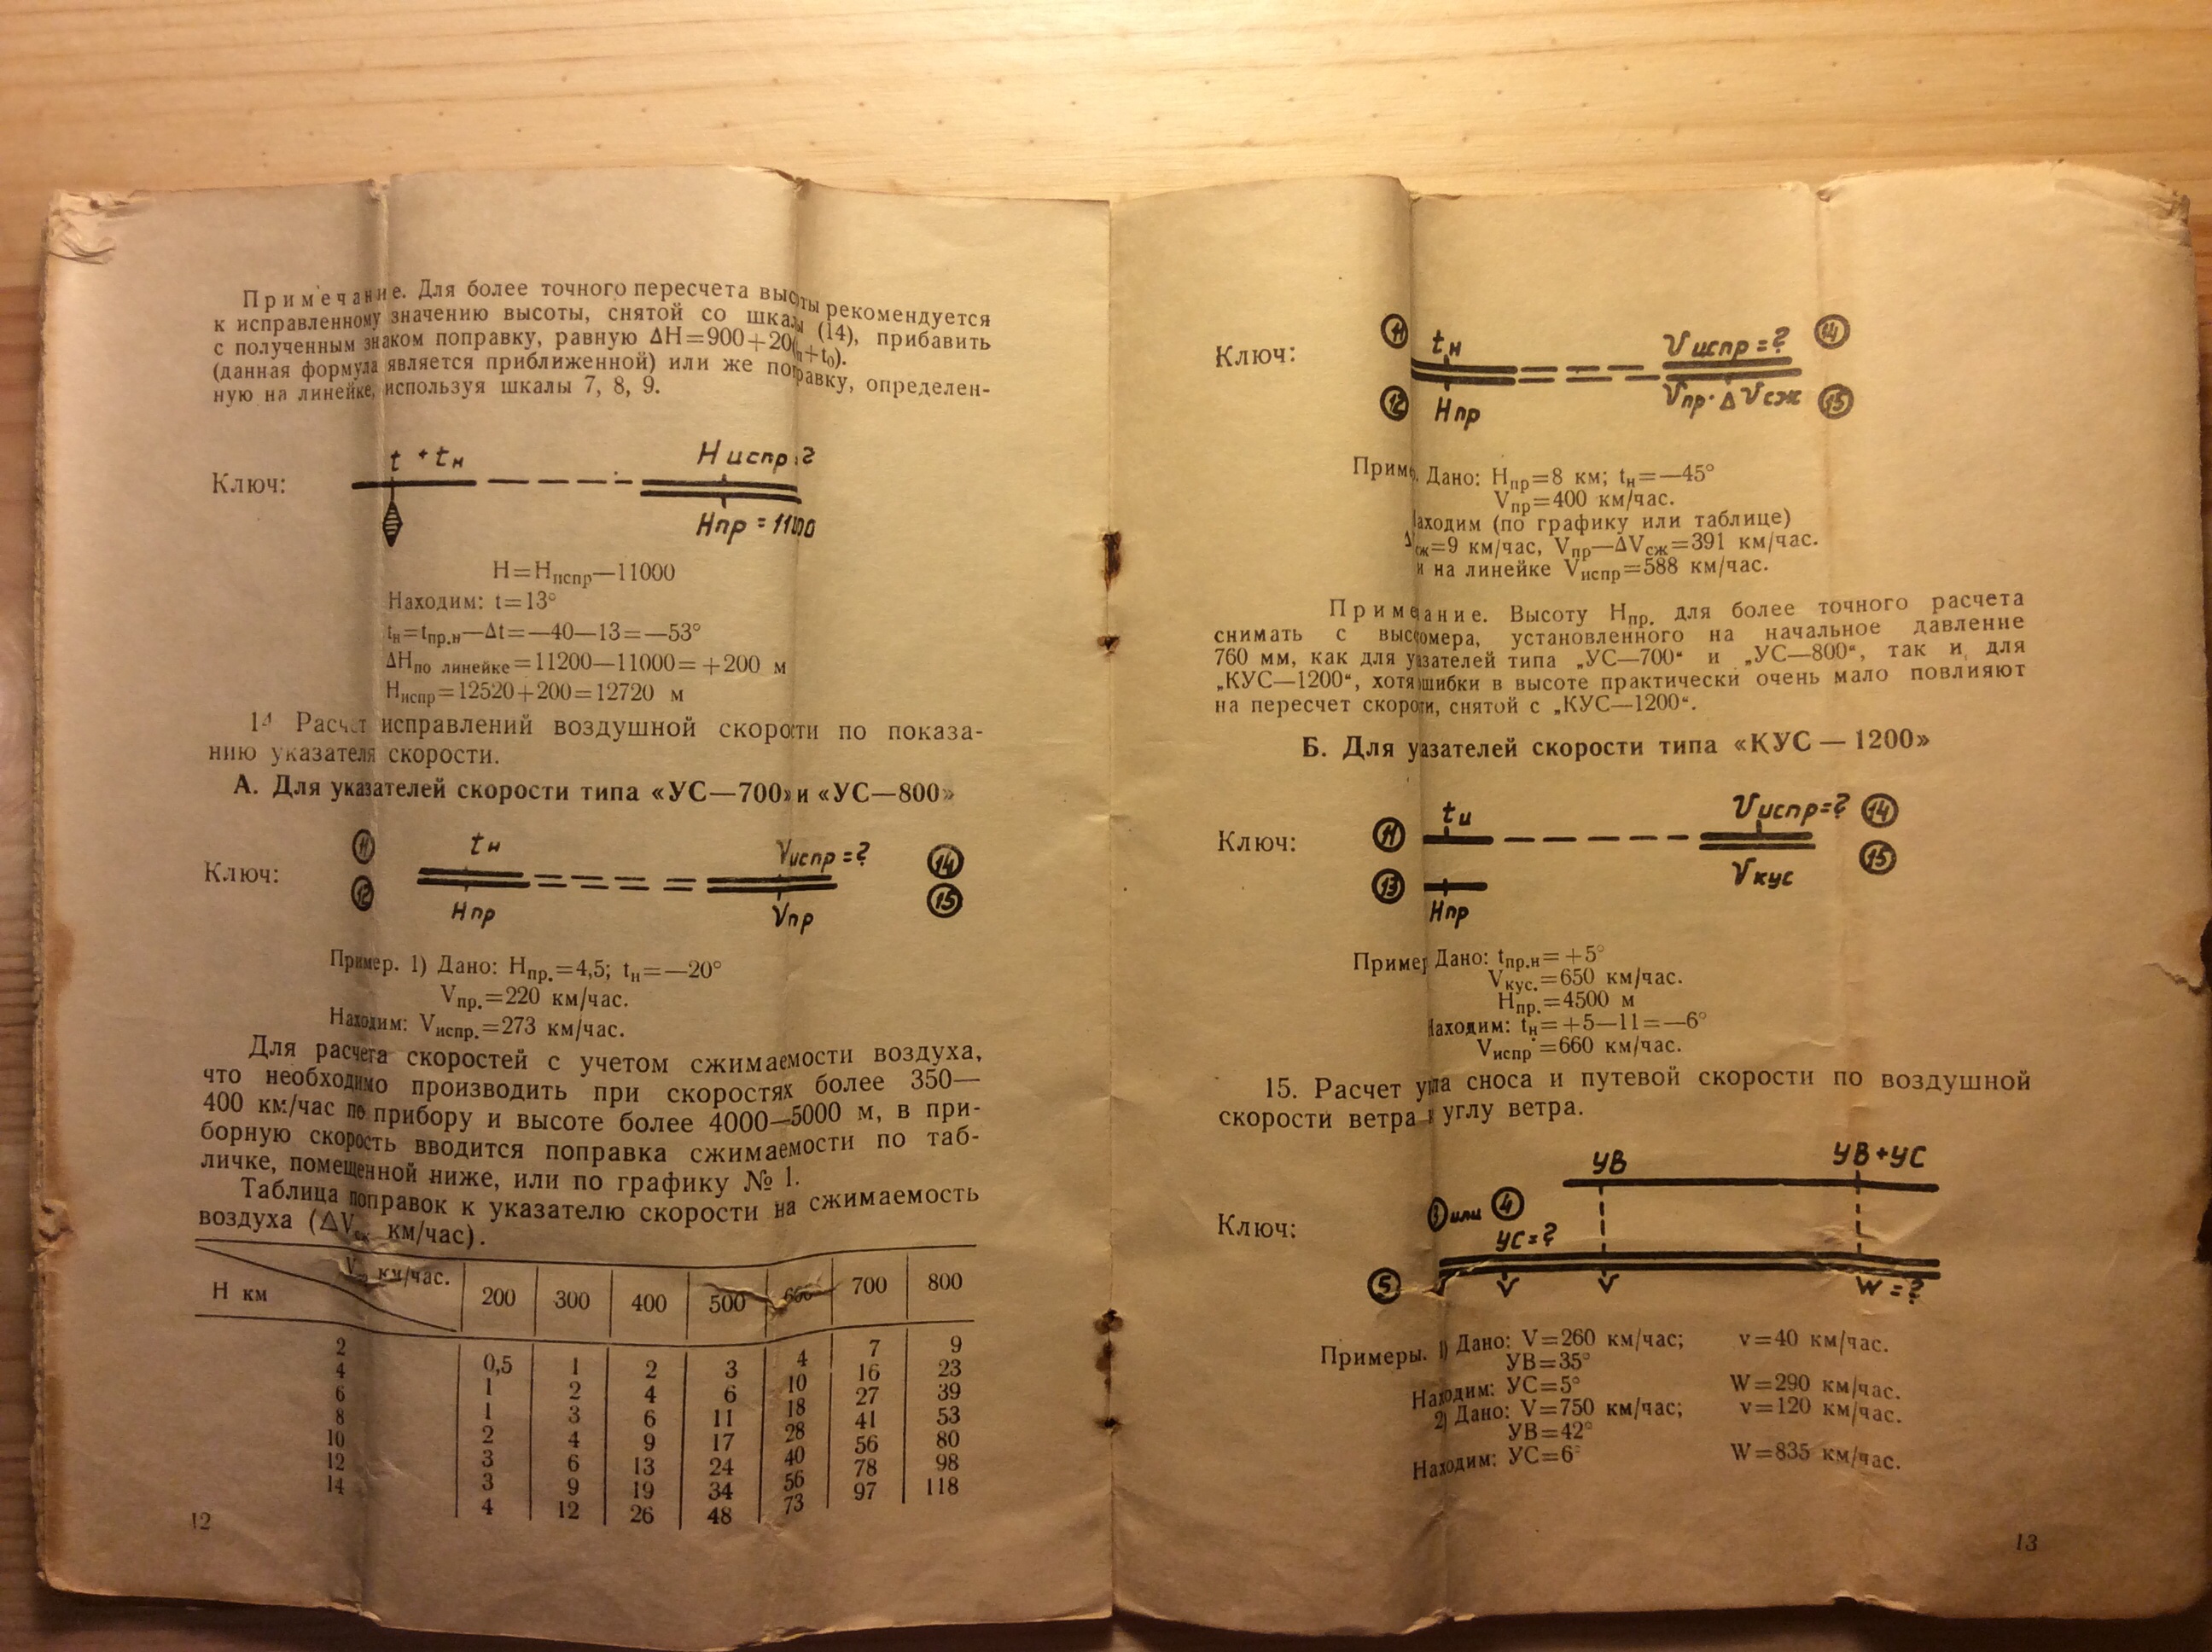 Примечание. Для более точного пересчета высоты рекомендуется
к исправленному значению высоты, снятой со шкалы (14), прибавить
с полученным знаком поправку, равную ΔH=900+20( n+t₀).
(данная формула является приближенной) или же поправку, определен-
ную на линейке, используя шкалы 7, 8, 9.
t + tн Hиспр=?
Ключ:
Hпр = 11000
H=Hиспр—11000
Находим: t=13°
tн=tпр.н—Δt=—40—13=—53°
ΔHпо линейке=11200—11000=+200 м
Hиспр=12520+200=12720 м
14 Расчет исправлений воздушной скорости по показа-
нию указателя скорости.
А. Для указателей скорости типа «УС—700» и «УС—800»
11 tн Vиспр=? 14
Ключ:
12 Hпр Vпр 15
Пример. 1) Дано: Hпр.=4,5; tн=—20°
Vпр.=220 км/час.
Находим: Vиспр.=273 км/час.
Для расчета скоростей с учетом сжимаемости воздуха,
что необходимо производить при скоростях более 350—
400 км/час по прибору и высоте более 4000—5000 м, в при-
борную скорость вводится поправка сжимаемости по таб-
личке, помещенной ниже, или по графику № 1.
Таблица поправок к указателю скорости на сжимаемость
воздуха (ΔVсж км/час).
H км V км/час. 200 300 400 500 600 700 800
2 0,5 1 2 3 4 7 9
4 1 2 4 6 10 16 23
6 1 3 6 11 18 27 39
8 2 4 9 17 28 41 53
10 3 6 13 24 40 56 80
12 3 9 19 34 56 78 98
14 4 12 26 48 73 97 118
12
11 tн Vиспр=? 14
Ключ:
12 Hпр Vпр·ΔVсж 15
Прим . Дано: Hпр=8 км; tн=—45°
Vпр=400 км/час.
Находим (по графику или таблице)
Δ сж=9 км/час, Vпр—ΔVсж=391 км/час.
и на линейке Vиспр=588 км/час.
Примечание. Высоту Hпр. для более точного расчета
снимать с высотомера, установленного на начальное давление
760 мм, как для указателей типа „УС—700“ и „УС—800“, так и для
„КУС—1200“, хотя ошибки в высоте практически очень мало повлияют
на пересчет скорости, снятой с „КУС—1200“.
Б. Для указателей скорости типа «КУС — 1200»
11 tн Vиспр=? 14
Ключ:
15
13 Vкус
Hпр
Пример Дано: tпр.н=+5°
Vкус.=650 км/час.
Hпр.=4500 м
Находим: tн=+5—11=—6°
Vиспр=660 км/час.
15. Расчет угла сноса и путевой скорости по воздушной
скорости ветра и углу ветра.
УВ УВ+УС
3 или 4
Ключ:
УС=?
5 v V W=?
Примеры. 1) Дано: V=260 км/час; v=40 км/час.
УВ=35°
Находим: УС=5° W=290 км/час.
2) Дано: V=750 км/час; v=120 км/час.
УВ=42°
Находим: УС=6° W=835 км/час.
13